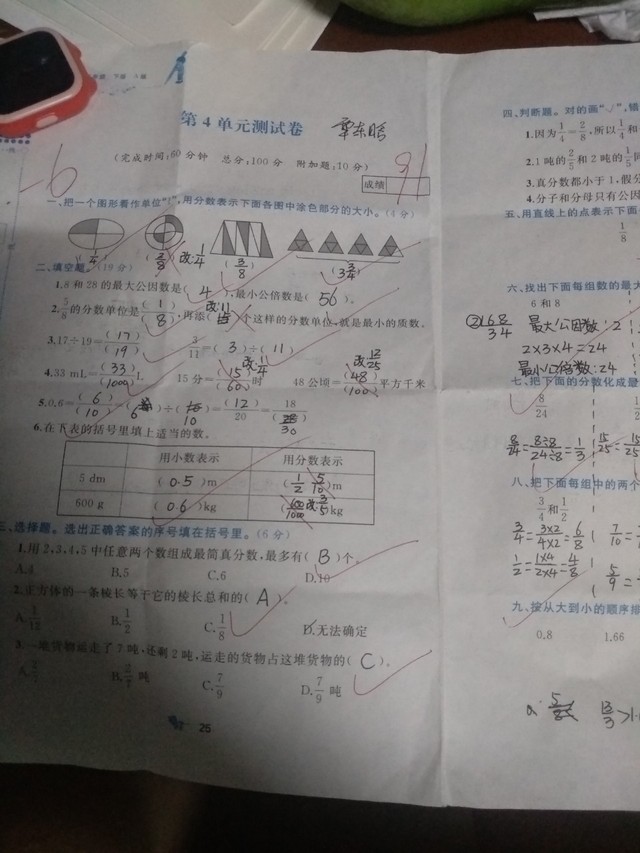 第4单元测试卷 章东晗
(完成时间:60分钟 总分:100分 附加题:10分)
-6
成绩 91
一、把一个图形看作单位"1",用分数表示下面各图中涂色部分的大小。(4分)
(1/4) (3/8) 改:1/4 (3/8) (3 3/4)
二、填空题。(19分)
1.8和28的最大公因数是( 4 ),最小公倍数是( 56 )。
2.5/8的分数单位是(1)/(8),再添( 改:11 )个这样的分数单位,就是最小的质数。
3.17÷19=(17)/(19) 3/11=( 3 )÷( 11 )
4.33 mL=(33)/(1000)L 15分=(15)/(60)时 改:1/4 48公顷=(48)/(100)平方千米 改:12/25
5.0.6=(6)/(10)=( 6 )÷( 10 )=(12)/20=18/(30)
6.在下表的括号里填上适当的数。
用小数表示 用分数表示
5 dm ( 0.5 )m (1/2 5/10)m
600 g ( 0.6 )kg (600/1000 改:3/5)kg
三、选择题。选出正确答案的序号填在括号里。(6分)
1.用2,3,4,5中任意两个数组成最简真分数,最多有( B )个。
A.4 B.5 C.6 D.10
2.正方体的一条棱长等于它的棱长总和的( A )。
A.1/12 B.1/2 C.1/8 D.无法确定
3.一堆货物运走了7吨,还剩2吨,运走的货物占这堆货物的( C )。
A.2/7 B.2/7吨 C.7/9 D.7/9吨
25
四、判断题。对的画"√",错
1.因为1/4=2/8,所以1/4和
2.1吨的2/5和2吨的1/5同
3.真分数都小于1,假分
4.分子和分母只有公因
五、用直线上的点表示下面
1/8
六、找出下面每组数的最大
6和8
②2|6 8
3 4
最大公因数:2
2×3×4=24
最小公倍数:24
七、把下面的分数化成最
8/24
8/24=8÷8/24÷8=1/3 15/25=15
八、把下面每组中的两个
3/4和1/2
3/4=3×2/4×2=6/8 7/10=
1/2=1×4/2×4=4/8 5/9=
九、按从大到小的顺序排
0.8 1.66